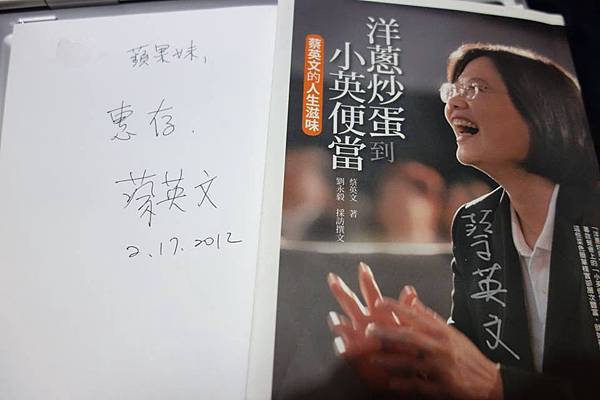 蘋果妹,
惠存.
蔡英文
2.17.2012
洋蔥炒蛋到
小英便當
蔡英文的人生滋味
蔡英文 著
劉永毅 採訪撰文
蔡英文